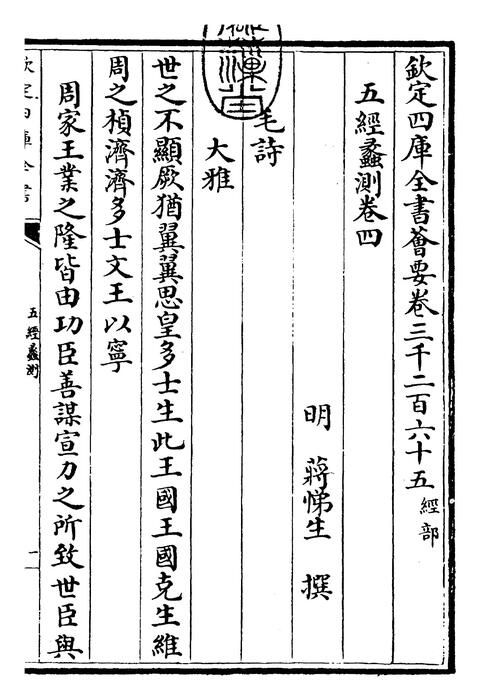 欽定四庫全書薈要卷三千二百六十五 經部
五經蠡測卷四
明 蔣悌生 撰
毛詩
大雅
世之不顯厥猶翼翼思皇多士生此王國王國克生維
周之楨濟濟多士文王以寧
周家王業之隆皆由功臣善謀宣力之所致世臣與
欽定四庫全書
五經蠡測
一